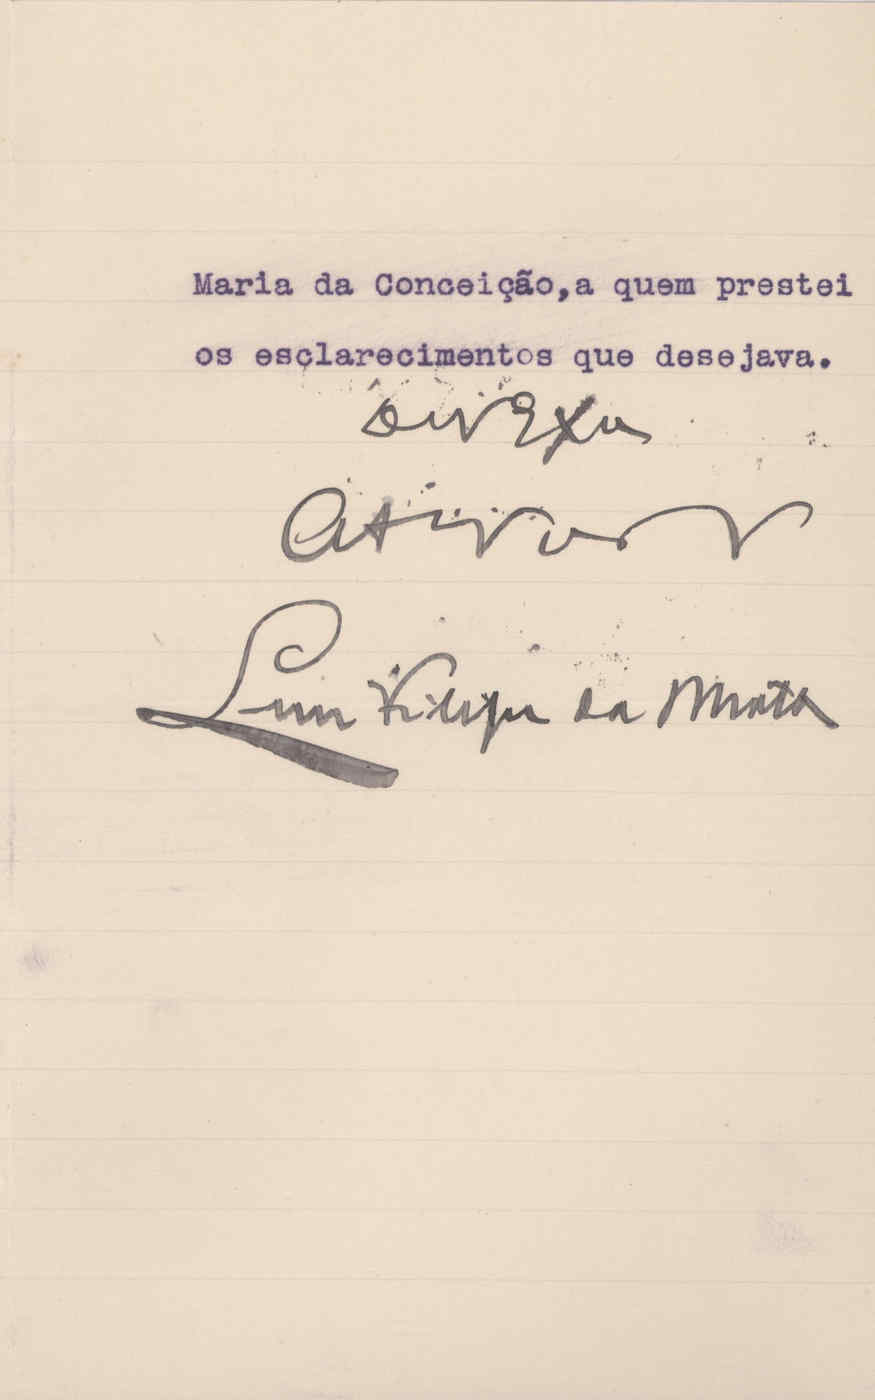 Maria da Conceição,a quem prestei
os esçlarecimentos que desejava.
De V Exa
Luis Filipe da Mata